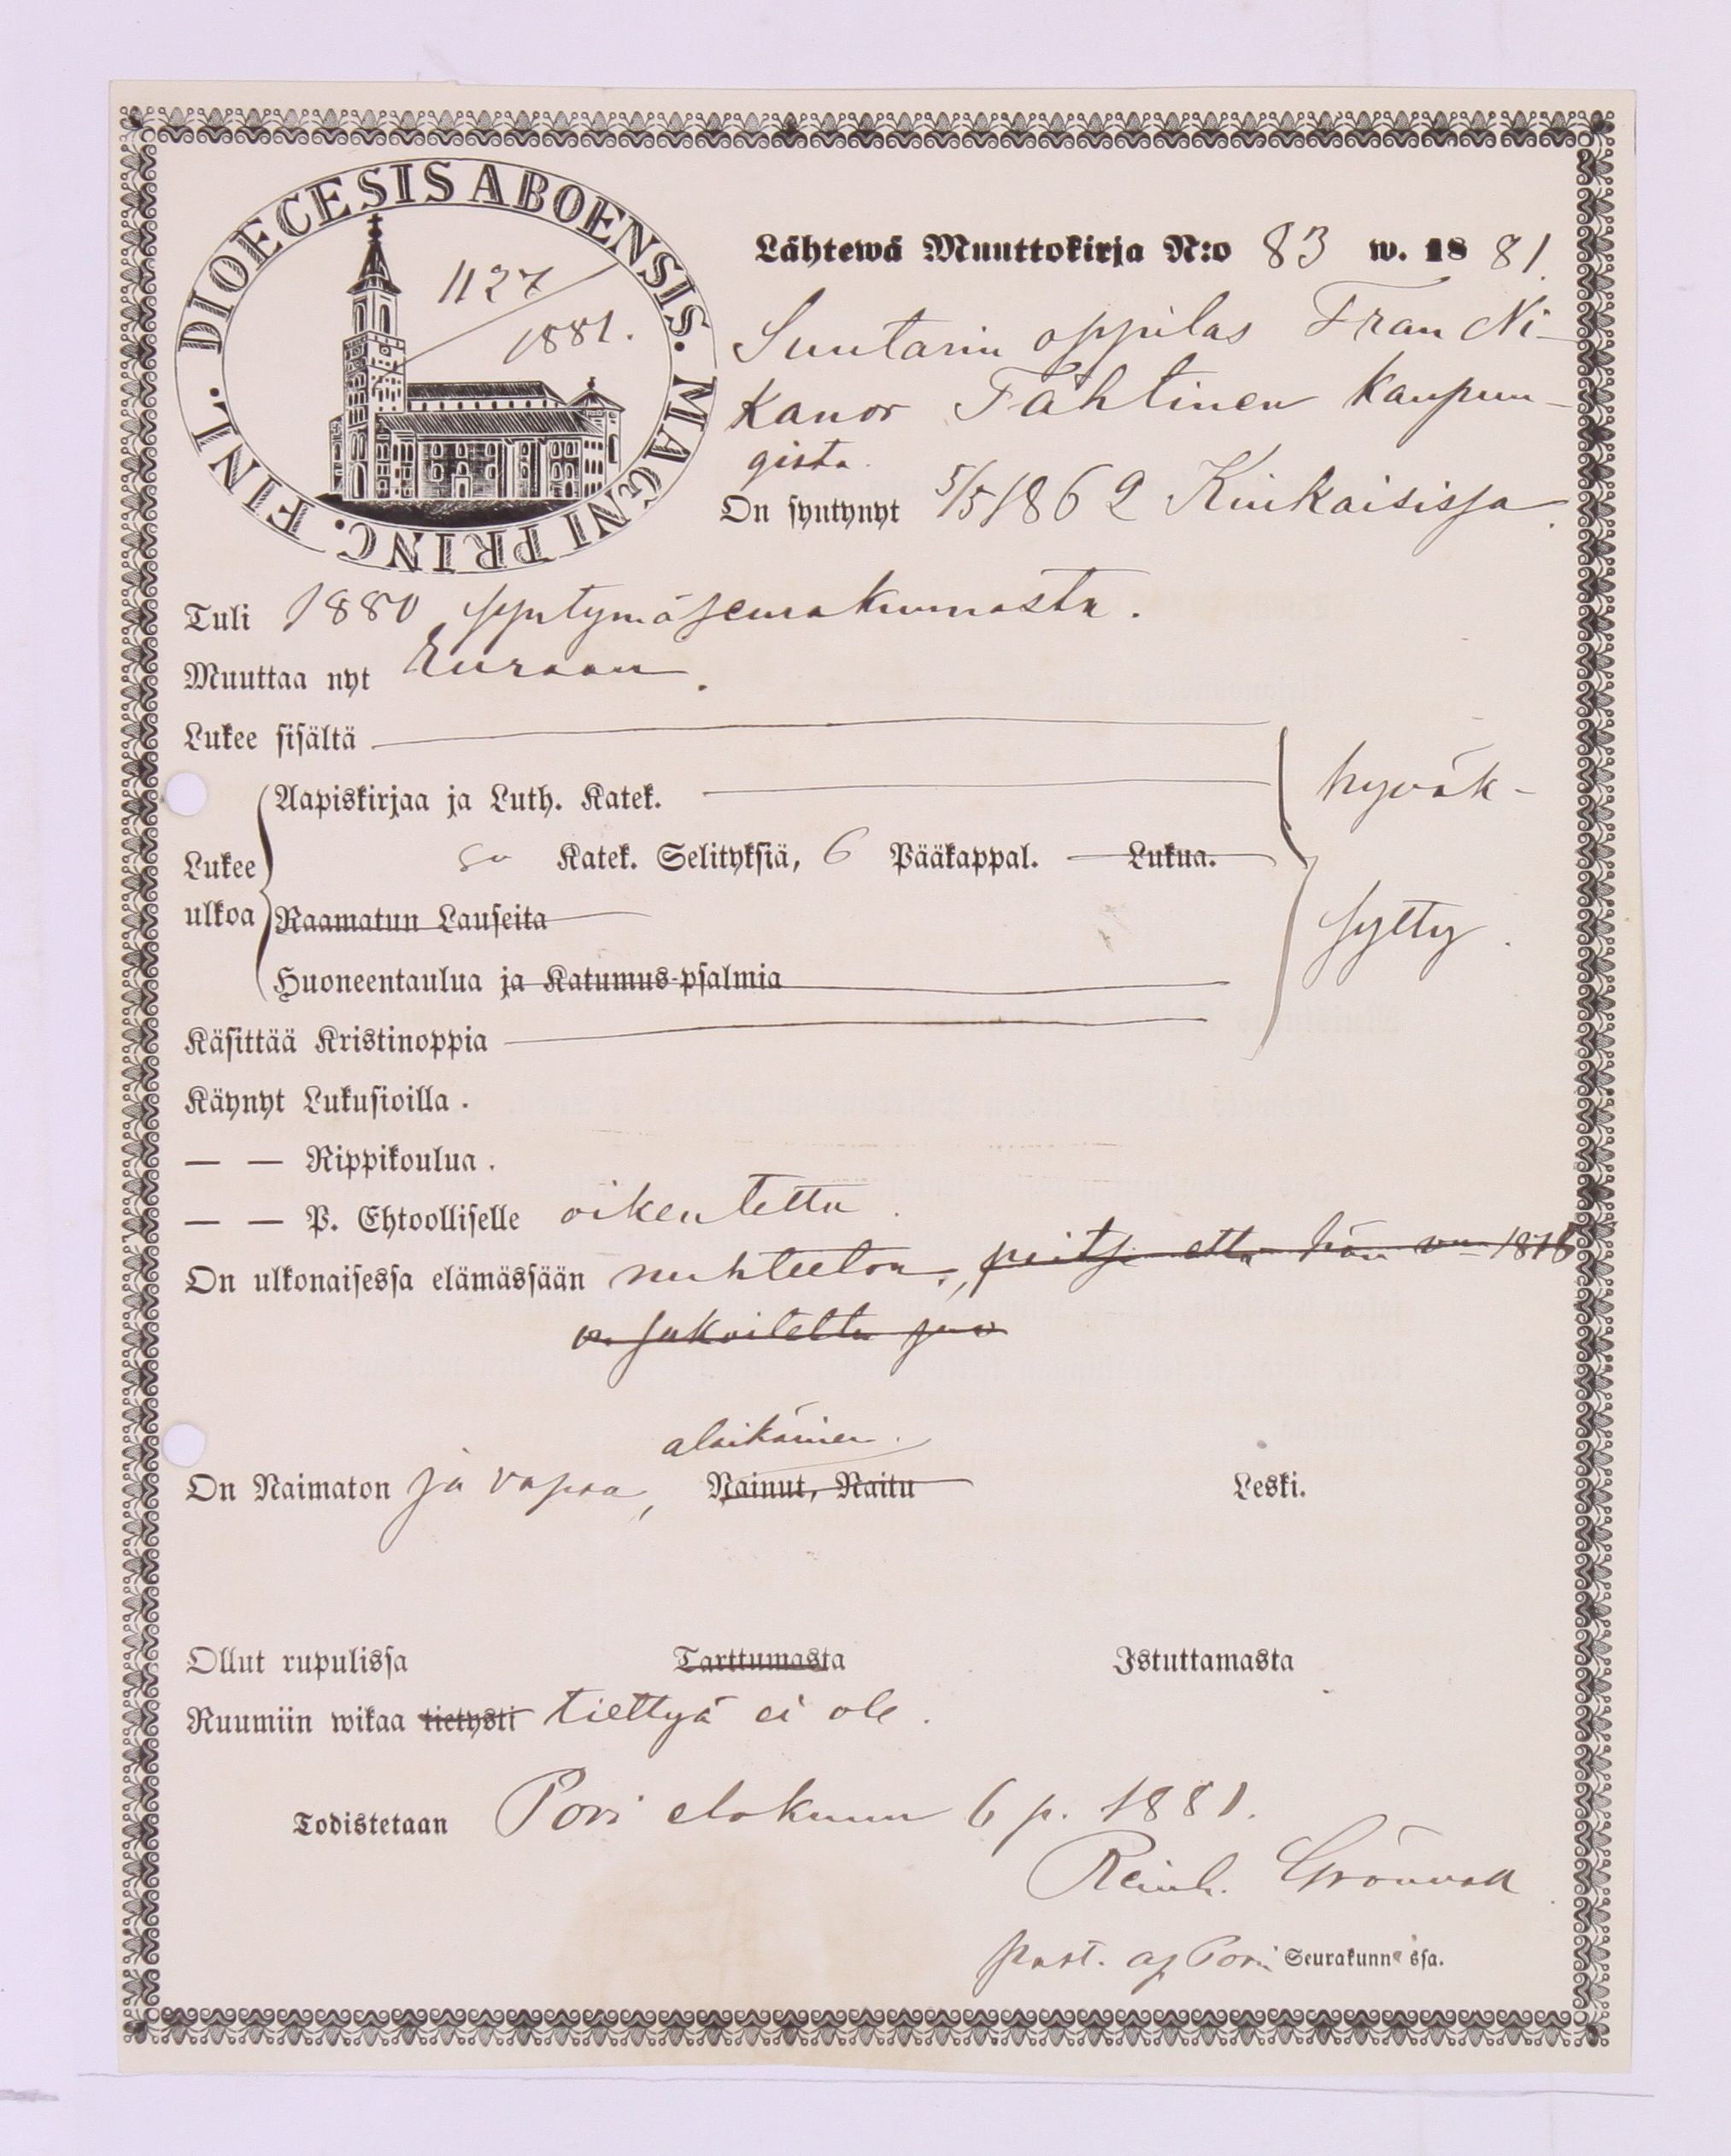 DIOECESIS ABOENSIS. MAGNI PRINC. FINL.
1127
1881.
Lähtewä Muuttokirja N:o 83 w. 1881.
Suutarin oppilas Fran Ni-
kanor Tähtinen kaupun-
gista.
On syntynyt 5/5 1862 Kiukaisissa.
Tuli 1880 syntymäseurakunnasta.
Muuttaa nyt Euraan.
Lukee sisältä
Aapiskirjaa ja Luth. Katek.
hyväk-
Lukee ulkoa
Katek. Selityksiä, 6 Pääkappal. Lukua.
Raamatun Lauseita
sytty.
Huoneentaulua ja Katumus-psalmia
Käsittää Kristinoppia
Käynyt Lukusioilla.
— — Rippikoulua.
— — P. Ehtoolliselle oikeutettu.
On ulkonaisessa elämässään nuhteeton, paitsi että hän
sakoitettu
alaikäinen.
On Naimaton ja vapaa, Nainut, Naitu Leski.
Ollut rupulissa Tarttumasta Istuttamasta
Ruumiin wikaa tietysti tiettyä ei ole.
Todistetaan Pori elokuun 6 p. 1881.
Reinh. Grönvall
past. Pori Seurakunnassa.